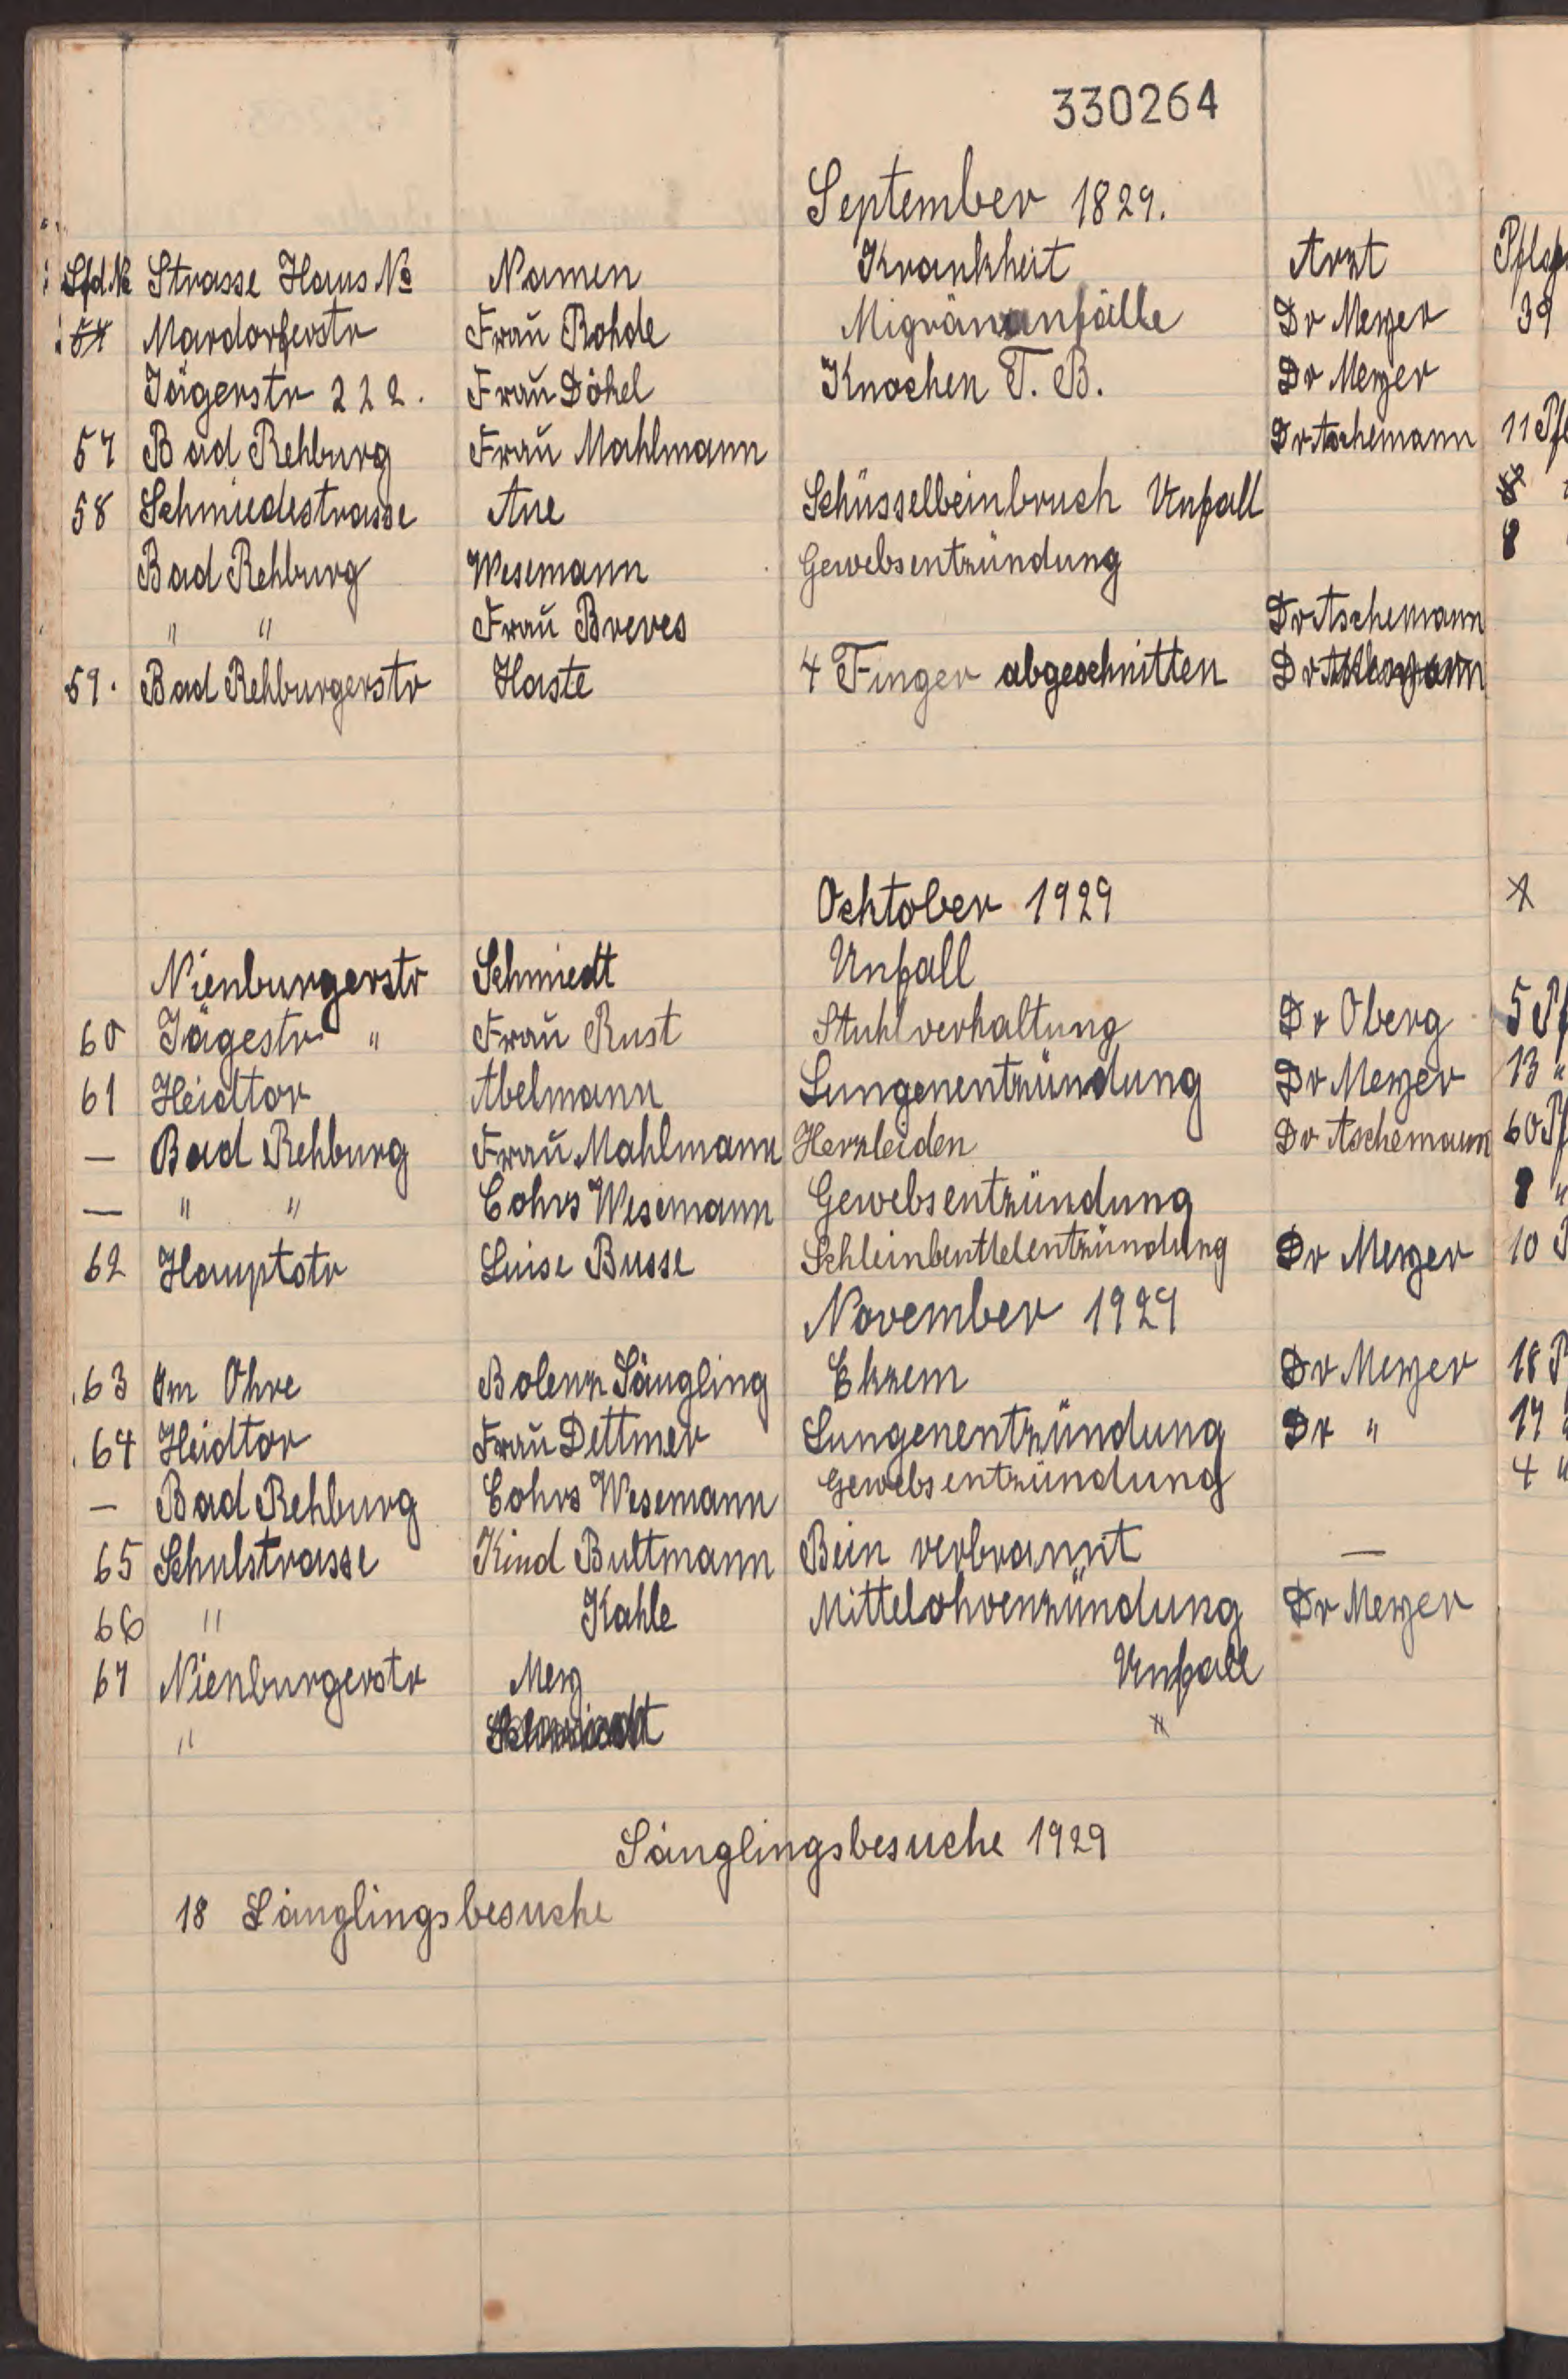 330264
September 1829.
Lfd. № Strasse Haus № Namen Krankheit Arzt
Mardorferstr Frau Rohde Migränanfälle Dr Meyer 39
Jägerstr 222. Frau Döhel Knochen T. B. Dr Meyer
57 Bad Rehburg Frau Mahlmann Dr Aschemann 11 Pfl
58 Schmiedestrasse Aue Schüsselbeinbruch Unfall 8
Bad Rehburg Wesemann Gewebsentzündung 8
" " Frau Breves Dr Aschemann
59. Bad Rehburgerstr Haste 4 Finger abgeschnitten Dr
Ocktober 1929
Nienburgerstr Schmiedt Unfall
60 Jägestr " Frau Rust Stuhlverhaltung Dr Oberg 5 Pf
61 Heidtor Abelmann Lungenentzündung Dr Meyer 13 "
— Bad Rehburg Frau Mahlmann Herzleiden Dr Aschemann 60 Pf
— " " Cohrs Wesemann Gewebsentzündung 8 "
62 Hauptstr Luise Busse Schleinbeutelentzündung Dr Meyer 10 P
November 1929
63 Im Ohre Bolenz Säugling Ekzem Dr Meyer 18 P
64 Heidtor Frau Dettmer Lungenentzündung Dr " 17
— Bad Rehburg Cohrs Wesemann Gewebsentzündung 4 "
65 Schulstrasse Kind Bultmann Bein verbrannt —
66 " Kahle Mittelohrenzündung Dr Meyer
67 Nienburgerstr Mey Unfall
" Schmiedt "
Säuglingsbesuche 1929
18 Säuglingsbesuche